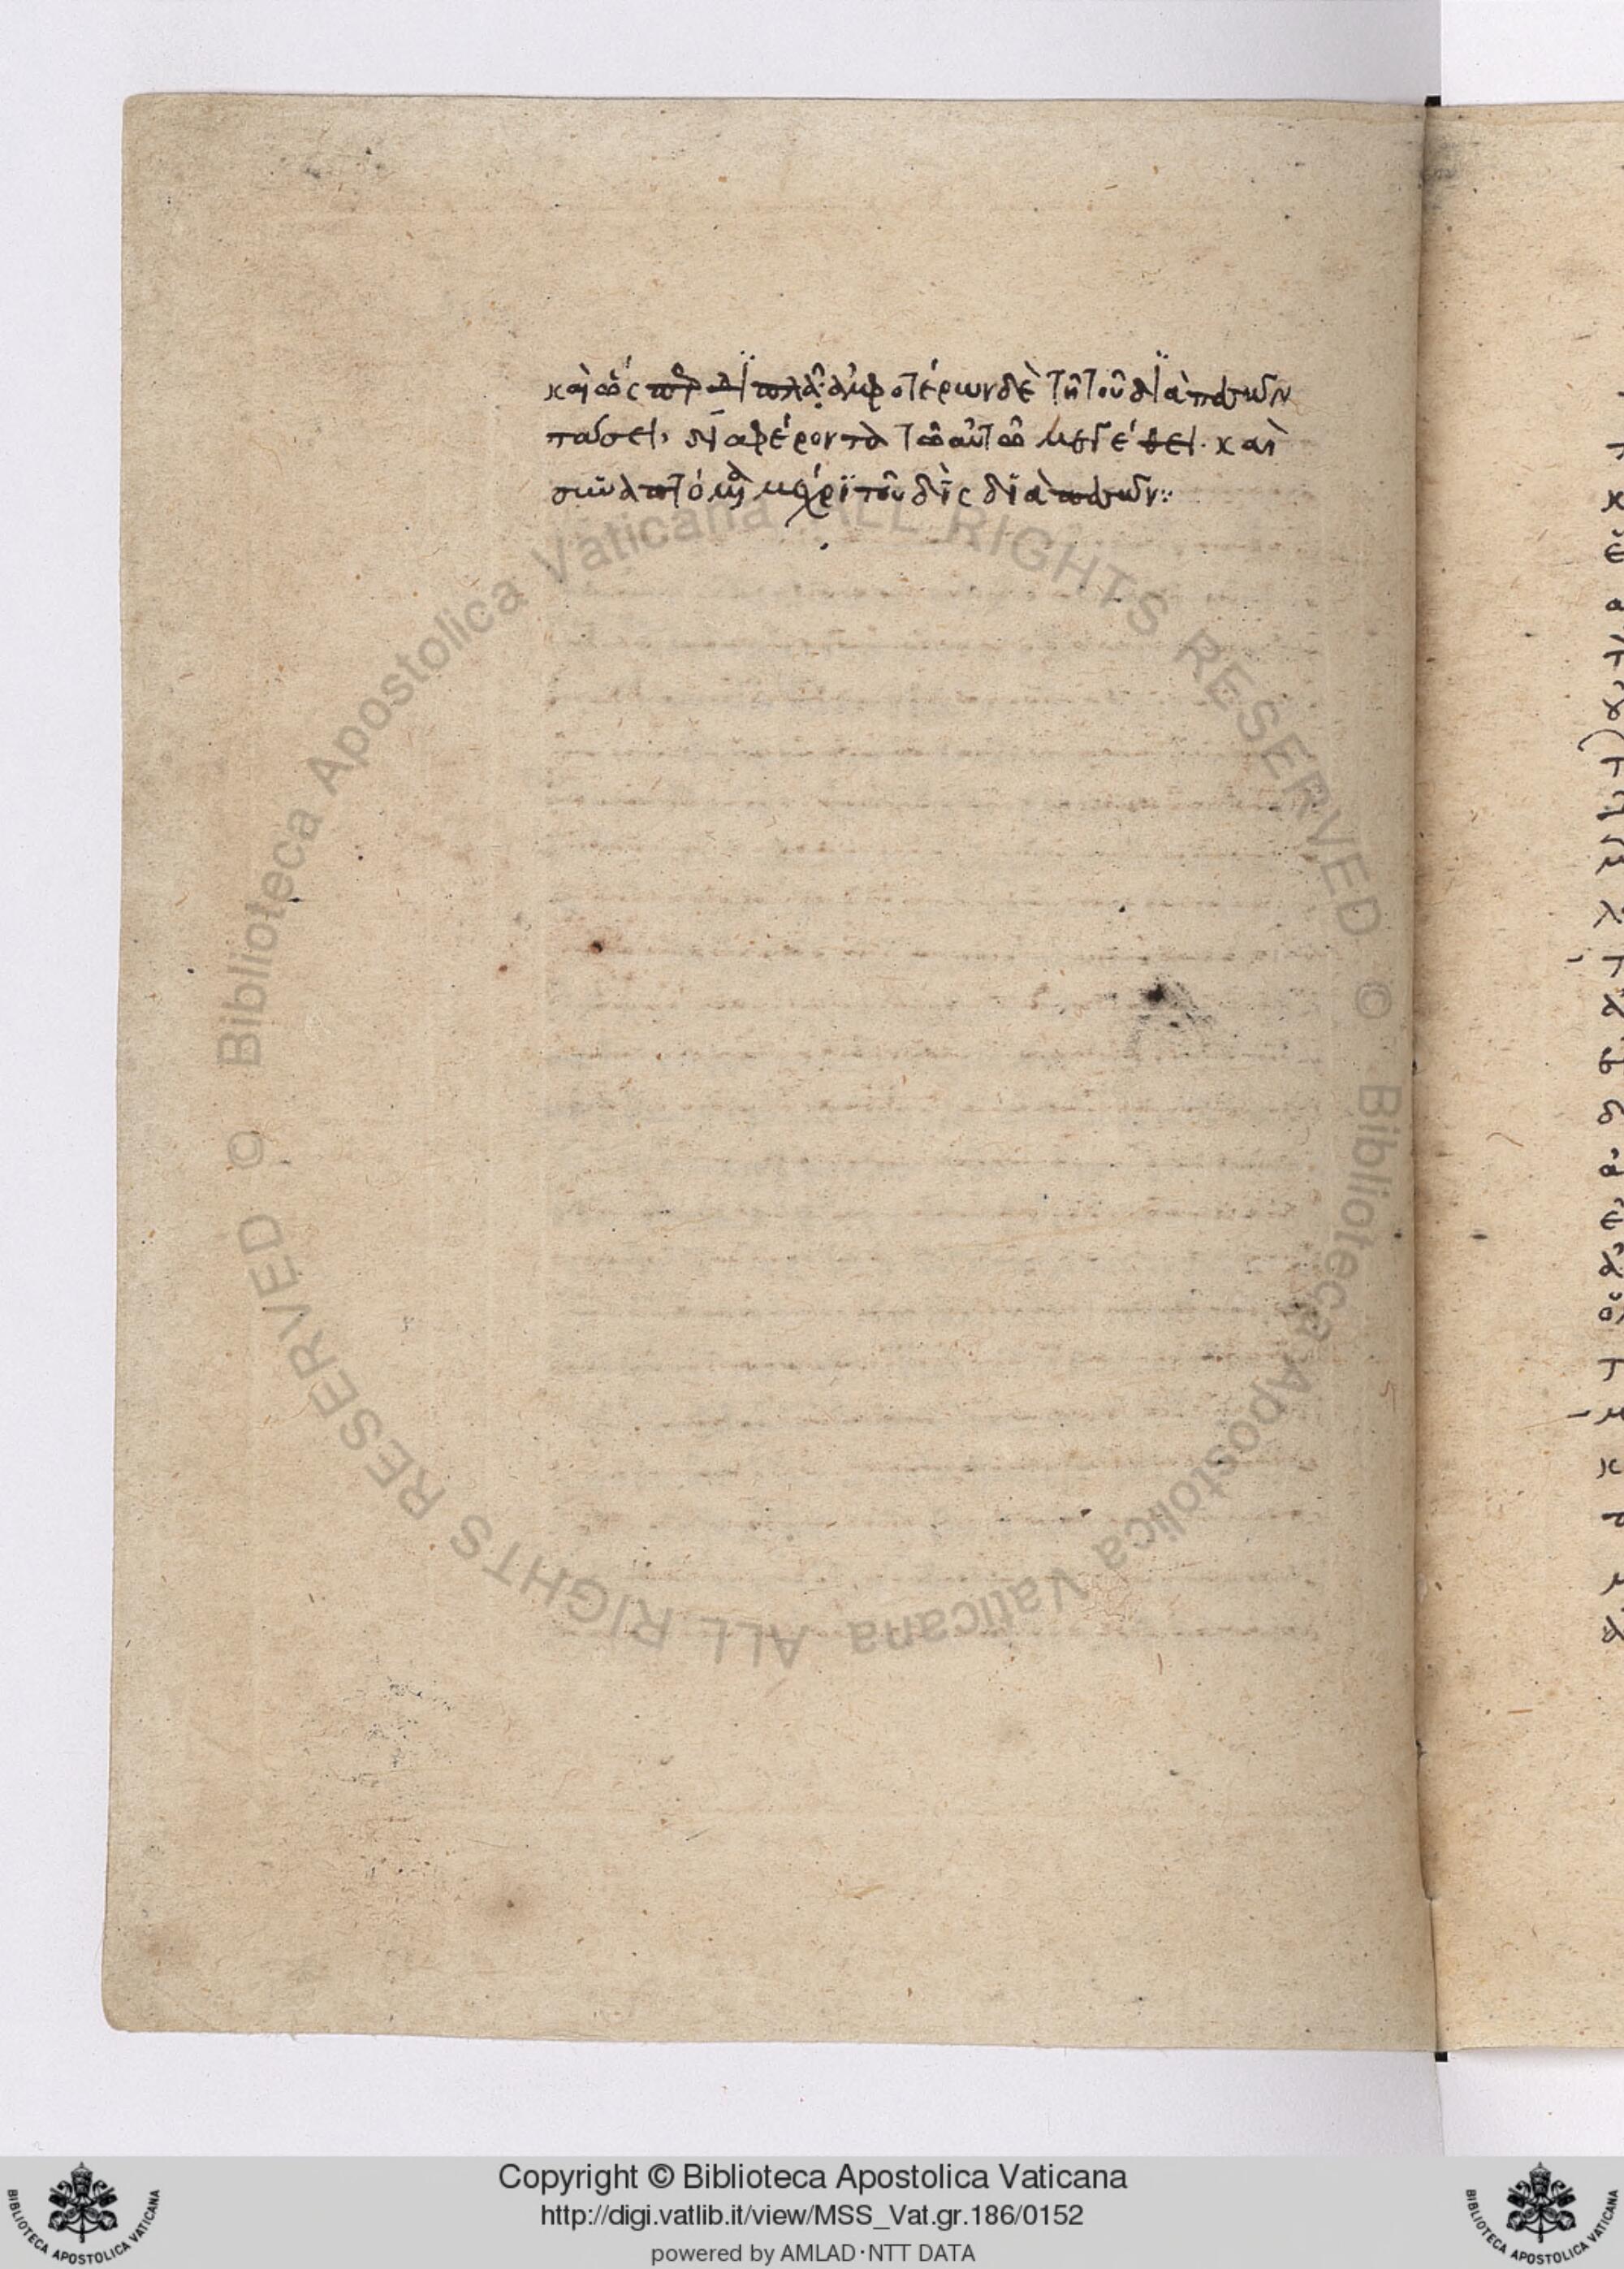 καὶ ὡς πρὸς διπλᾶ· ἀμφοτέρων δὲ τῇ τοῦ διὰ πασῶν
τάσει, διαφέροντα τῷ αὐτῷ μεγέθει· καὶ
μέχρι τοῦ δὶς διὰ πασῶν:
© Biblioteca Apostolica Vaticana ALL RIGHTS RESERVED © Biblioteca Apostolica Vaticana ALL RIGHTS RESERVED
Copyright © Biblioteca Apostolica Vaticana
http://digi.vatlib.it/view/MSS_Vat.gr.186/0152
powered by AMLAD·NTT DATA
BIBLIOTECA APOSTOLICA VATICANA
BIBLIOTECA APOSTOLICA VATICANA